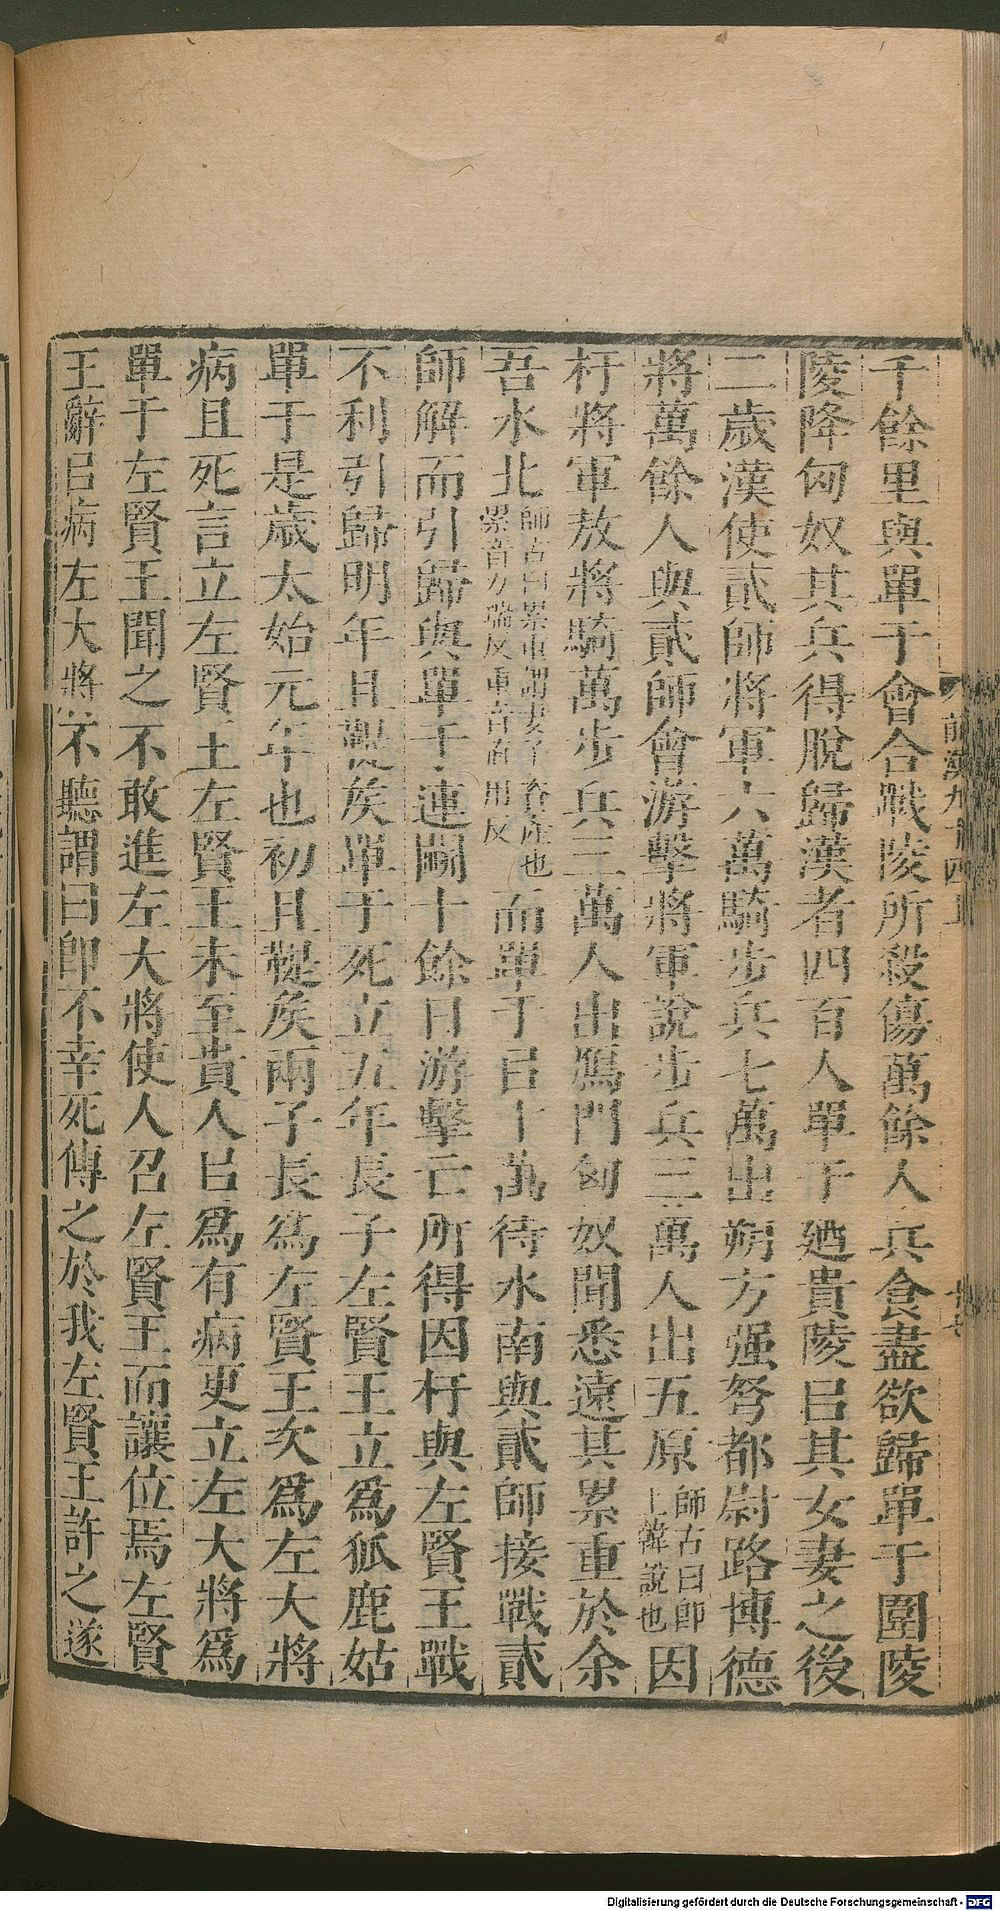 千餘里與單于會合戰陵所殺傷萬餘人兵食盡欲歸單于圍陵
陵降匈奴其兵得脫歸漢者四百人單于廼貴陵㠯其女妻之後
二歲漢使貳師將軍六萬騎步兵七萬出朔方强弩都尉路博德
將萬餘人與貳師會游擊將軍說步兵三萬人出五原師古曰即上韓說也因
杅將軍敖將騎萬步兵三萬人出鴈門匈奴聞悉遠其累重於余
吾水北師古曰累重謂妻子資產也累音力瑞反重音直用反而單于㠯十萬待水南與貳師接戰貳
師解而引歸與單于連鬬十餘日游擊亡所得因杅與左賢王戰
不利引歸明年且鞮矦單于死立五年長子左賢王立爲狐鹿姑
單于是歲太始元年也初且鞮矦兩子長爲左賢王次爲左大將
病且死言立左賢王左賢王未至貴人㠯爲有病更立左大將爲
單于左賢王聞之不敢進左大將使人召左賢王而讓位焉左賢
王辭㠯病左大將不聽謂曰即不幸死傳之於我左賢王許之遂
前漢九十四上
Digitalisierung gefördert durch die Deutsche Forschungsgemeinschaft - DFG